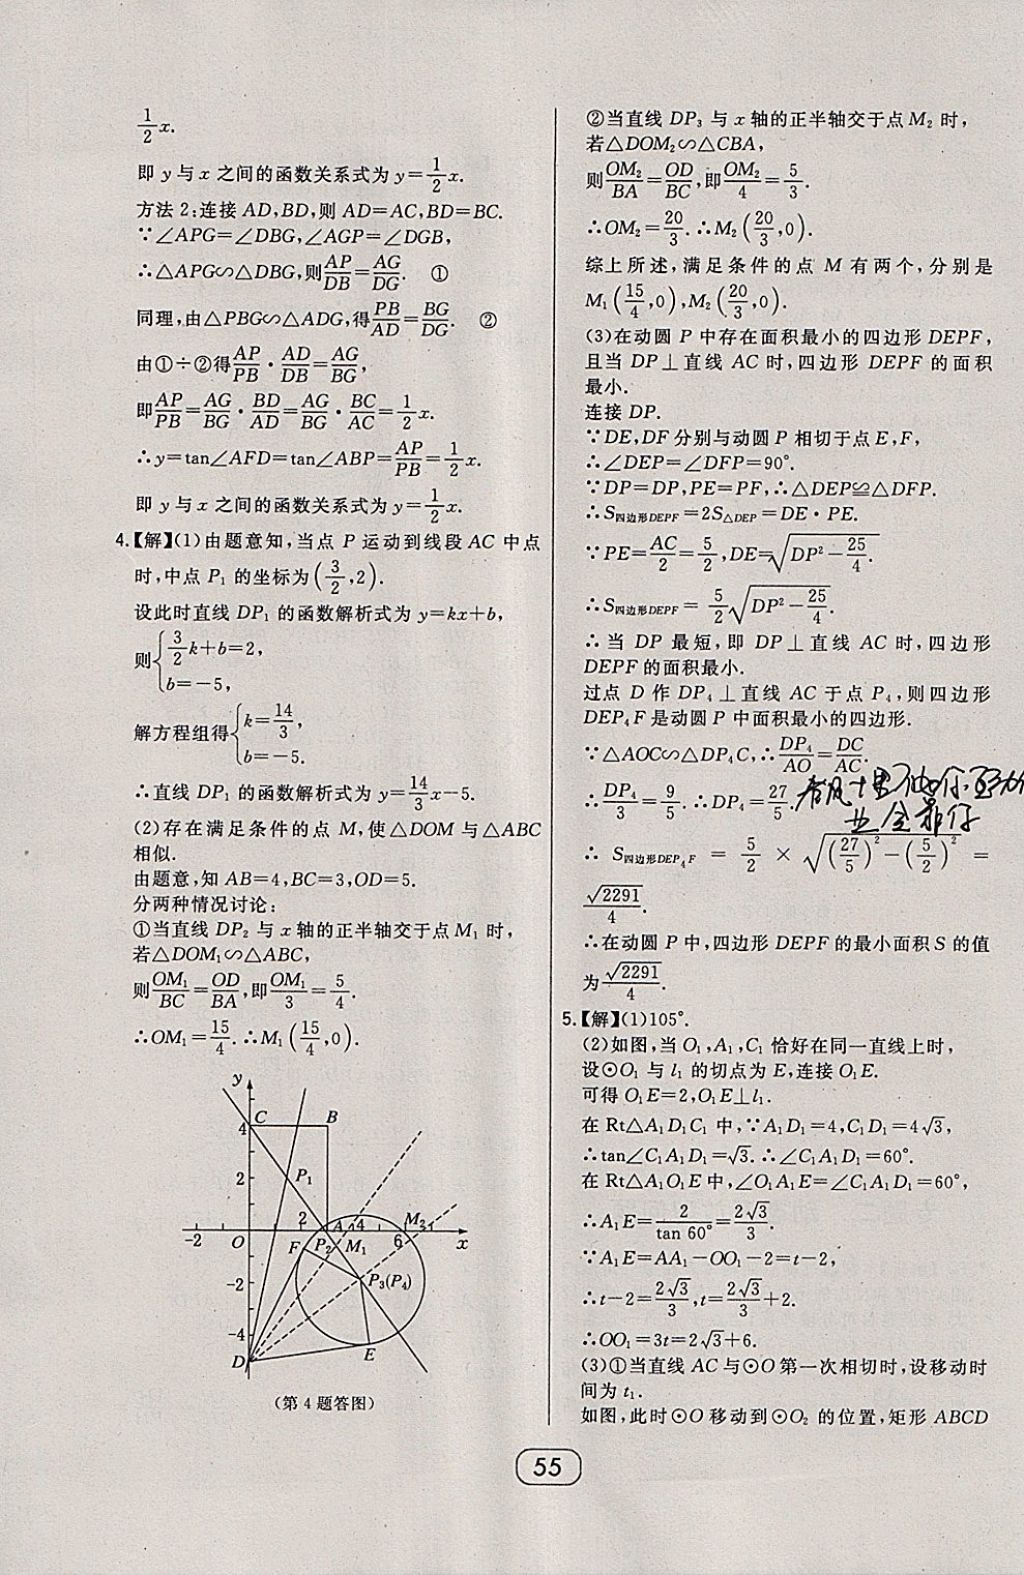 1/2 x.
即 y 与 x 之间的函数关系式为 y=1/2 x.
方法 2:连接 AD,BD,则 AD=AC,BD=BC.
∵∠APG=∠DBG,∠AGP=∠DGB,
∴△APG∽△DBG,则AP/DB=AG/DG. ①
同理,由△PBG∽△ADG,得PB/AD=BG/DG. ②
由①÷②得AP/PB·AD/DB=AG/BG,
即AP/PB=AG/BG·BD/AD=AG/BG·BC/AC=1/2 x.
∴y=tan∠AFD=tan∠ABP=AP/PB=1/2 x.
即 y 与 x 之间的函数关系式为 y=1/2 x.
4.【解】(1)由题意知,当点 P 运动到线段 AC 中点
时,中点 P₁ 的坐标为(3/2,2).
设此时直线 DP₁ 的函数解析式为 y=kx+b,
则{3/2 k+b=2,
b=-5,
解方程组得{k=14/3,
b=-5.
∴直线 DP₁ 的函数解析式为 y=14/3 x-5.
(2)存在满足条件的点 M,使△DOM 与△ABC
相似.
由题意,知 AB=4,BC=3,OD=5.
分两种情况讨论:
①当直线 DP₂ 与 x 轴的正半轴交于点 M₁ 时,
若△DOM₁∽△ABC,
则OM₁/BC=OD/BA,即OM₁/3=5/4.
∴OM₁=15/4.∴M₁(15/4,0).
y
C B
4
2 P₁
-2 O 2 A 4 M₂ 6 x
F P₂ M₁
-2 P₃(P₄)
-4
D E
(第 4 题答图)
②当直线 DP₃ 与 x 轴的正半轴交于点 M₂ 时,
若△DOM₂∽△CBA,
则OM₂/BA=OD/BC,即OM₂/4=5/3.
∴OM₂=20/3.∴M₂(20/3,0).
综上所述,满足条件的点 M 有两个,分别是
M₁(15/4,0),M₂(20/3,0).
(3)在动圆 P 中存在面积最小的四边形 DEPF,
且当 DP⊥直线 AC 时,四边形 DEPF 的面积
最小.
连接 DP.
∵DE,DF分别与动圆 P 相切于点 E,F,
∴∠DEP=∠DFP=90°.
∵DP=DP,PE=PF,∴△DEP≌△DFP.
∴S四边形DEPF=2S△DEP=DE·PE.
∵PE=AC/2=5/2,DE=√(DP²-25/4).
∴S四边形DEPF=5/2√(DP²-25/4).
∴当 DP 最短,即 DP⊥直线 AC 时,四边形
DEPF的面积最小.
过点 D 作 DP₄⊥直线 AC 于点 P₄,则四边形
DEP₄F是动圆 P 中面积最小的四边形.
∵△AOC∽△DP₄C,∴DP₄/AO=DC/AC.
∴DP₄/3=9/5.∴DP₄=27/5.
∴ S四边形DEP₄F = 5/2 × √((27/5)²-(5/2)²) =
√2291/4.
∴在动圆 P 中,四边形 DEPF的最小面积 S 的值
为√2291/4.
5.【解】(1)105°.
(2)如图,当 O₁,A₁,C₁ 恰好在同一直线上时,
设⊙O₁ 与 l₁ 的切点为 E,连接 O₁E.
可得 O₁E=2,O₁E⊥l₁.
在 Rt△A₁D₁C₁ 中,∵A₁D₁=4,C₁D₁=4√3,
∴tan∠C₁A₁D₁=√3.∴∠C₁A₁D₁=60°.
在 Rt△A₁O₁E 中,∠O₁A₁E=∠C₁A₁D₁=60°,
∴A₁E=2/tan 60°=2√3/3.
∵A₁E=AA₁-OO₁-2=t-2,
∴t-2=2√3/3,t=2√3/3+2.
∴OO₁=3t=2√3+6.
(3)①当直线 AC 与⊙O 第一次相切时,设移动时
间为 t₁.
如图,此时⊙O 移动到⊙O₂ 的位置,矩形 ABCD
55